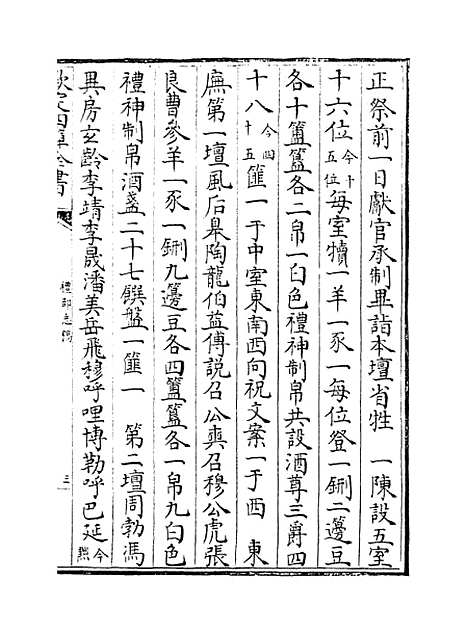 正祭前一日獻官承制畢詣本壇省牲　一陳設五室
十六位今十五位每室犢一羊一豕一每位登一鉶二籩豆
各十簠簋各二帛一白色禮神制帛共設酒尊三爵四
十八今四十五篚一于中室東南西向祝文案一于西　東
廡第一壇風后臯陶龍伯益傅説召公奭召穆公虎張
良曹參羊一豕一鉶九籩豆各四簠簋各一帛九白色
禮神制帛酒盞二十七饌盤一篚一　第二壇周勃馮
異房玄齡李靖李晟潘美岳飛穆呼哩博勒呼巴延今無
欽定四庫全書
禮部志稿
三